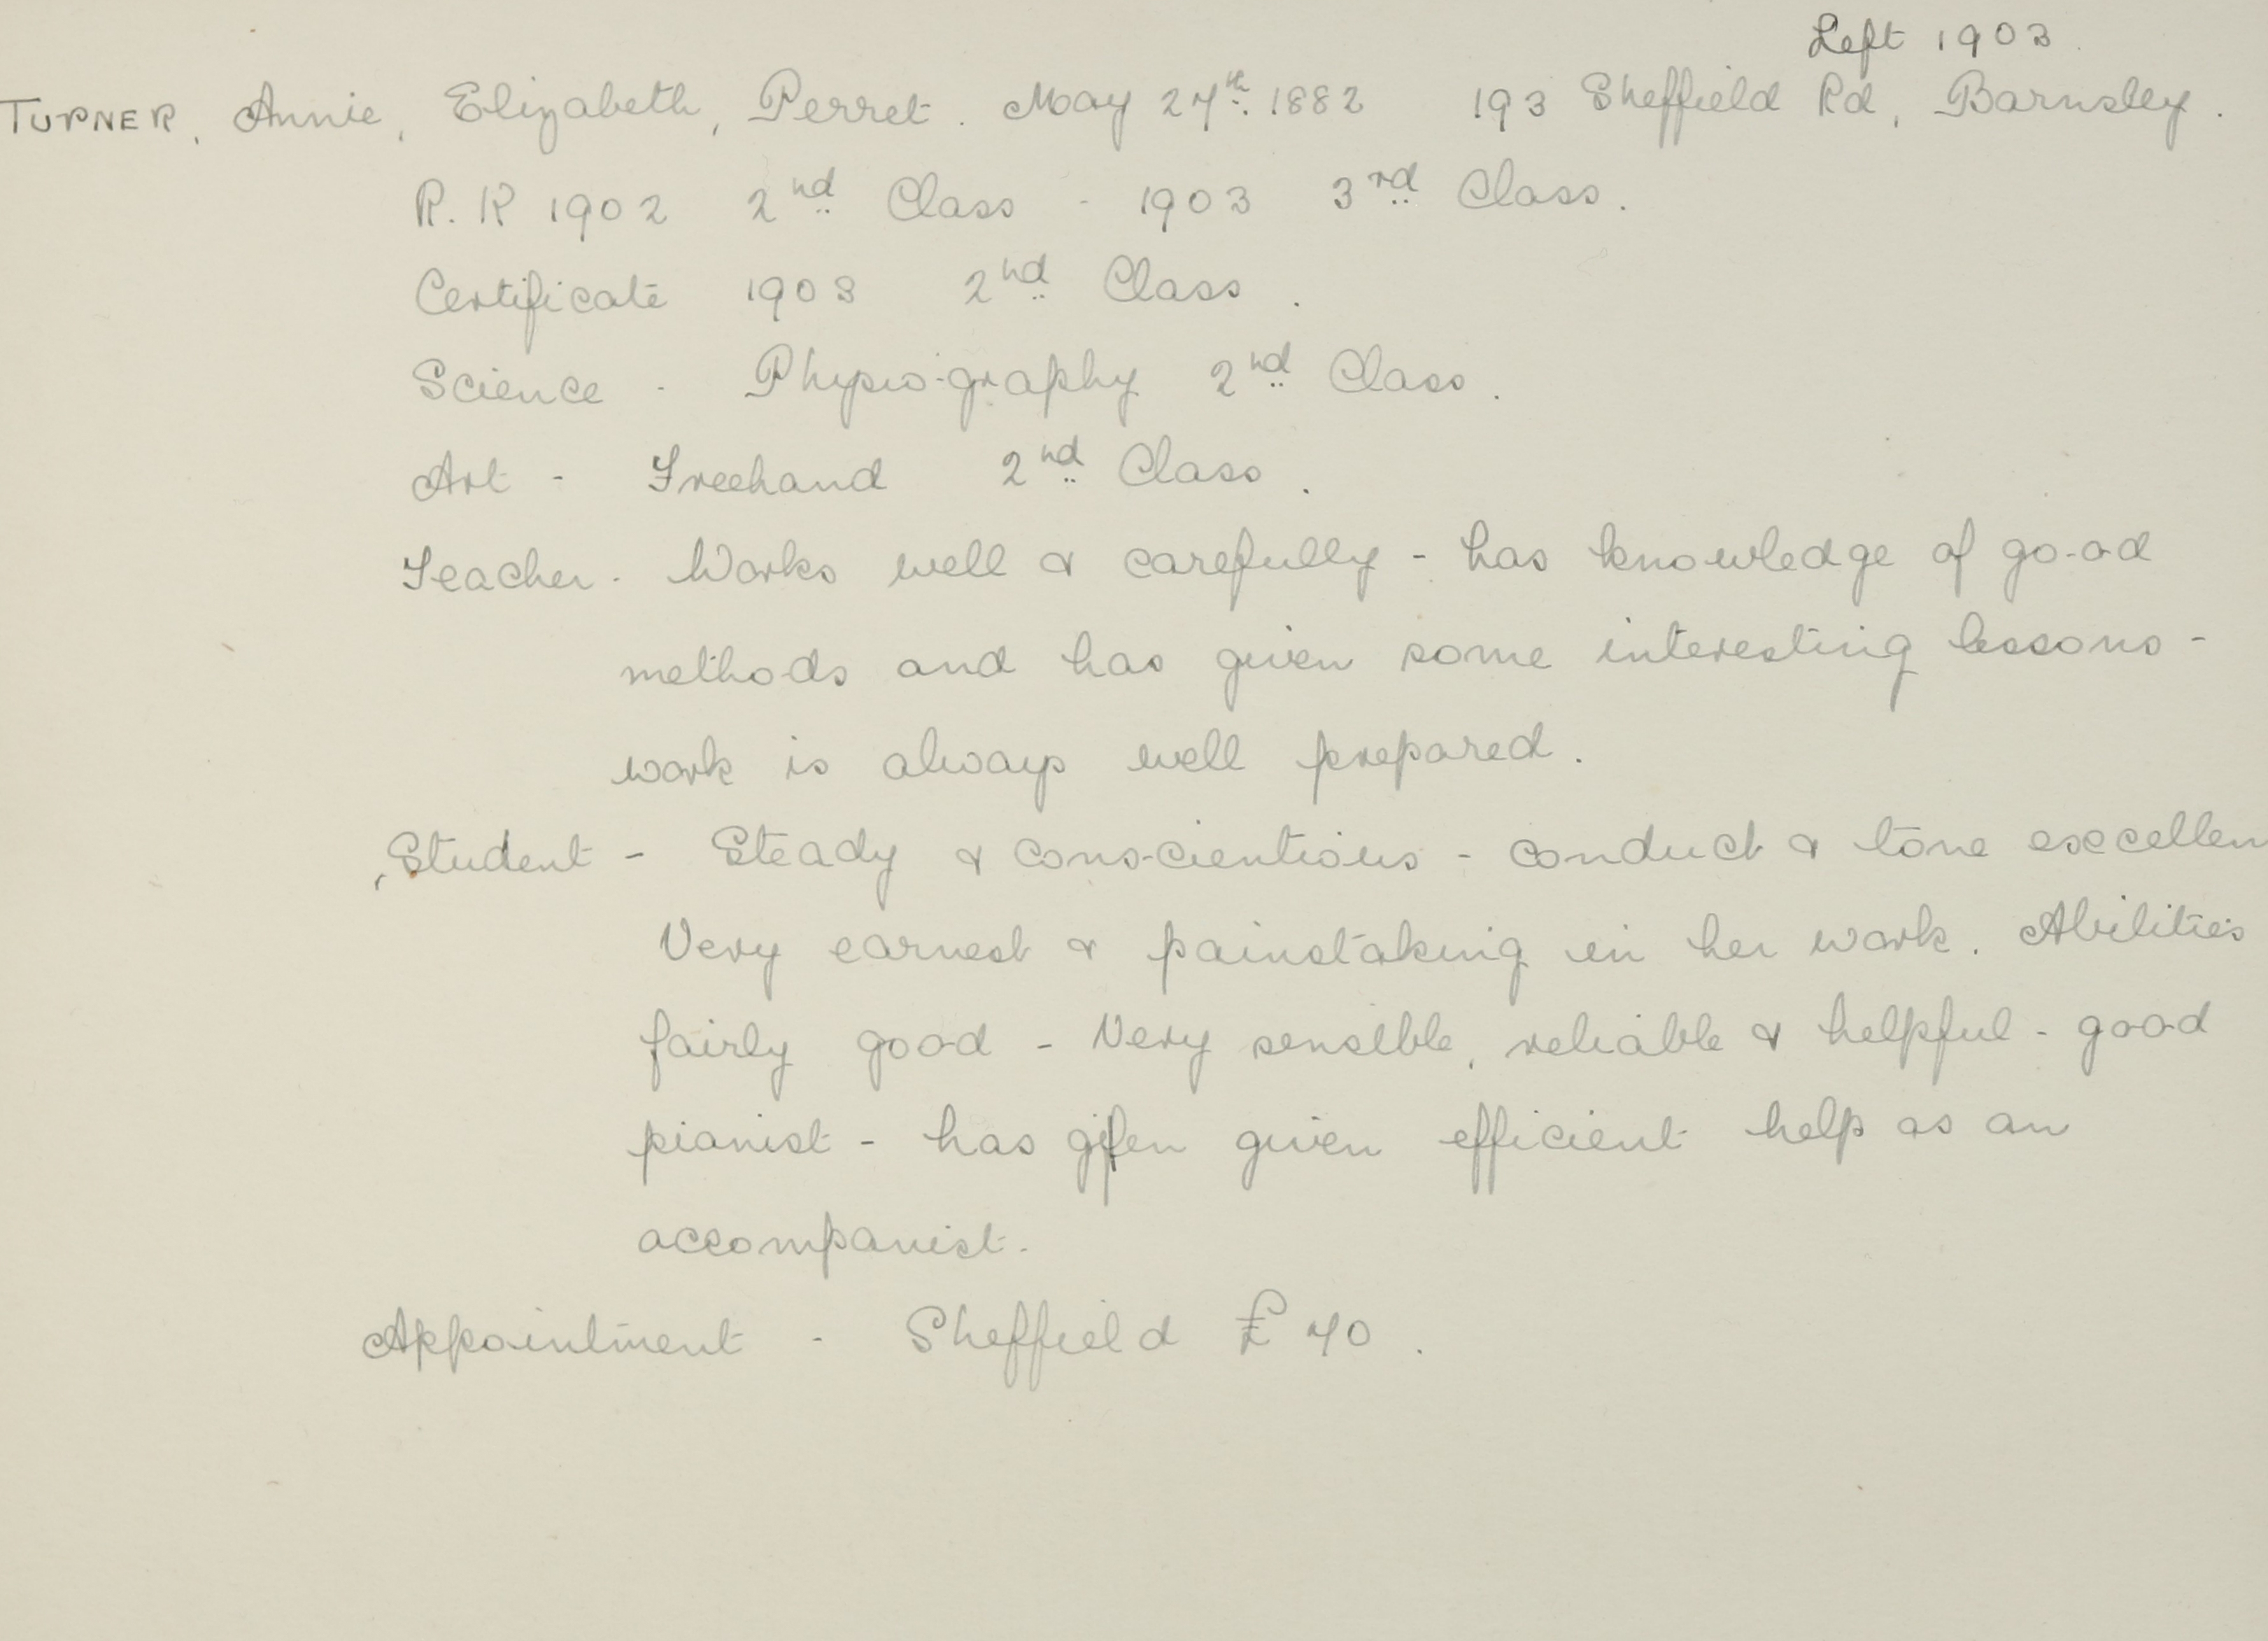 Left 1903.
TURNER, Annie, Elizabeth, Perret. May 27th. 1882 193 Sheffield Rd, Barnsley.
R. K 1902 2nd Class - 1903 3rd Class.
Certificate 1903 2nd Class.
Science - Physio-graphy 2nd Class.
Art - Freehand 2nd Class.
Teacher. Works well & carefully - has knowledge of good
methods and has given some interesting lessons -
work is always well prepared.
Student - Steady & conscientious - conduct & tone excellen
Very earnest & painstaking in her work. Abilities
fairly good - Very sensible, reliable & helpful - good
pianist - has gifen given efficient help as an
accompanist.
Appointment - Sheffield £70.